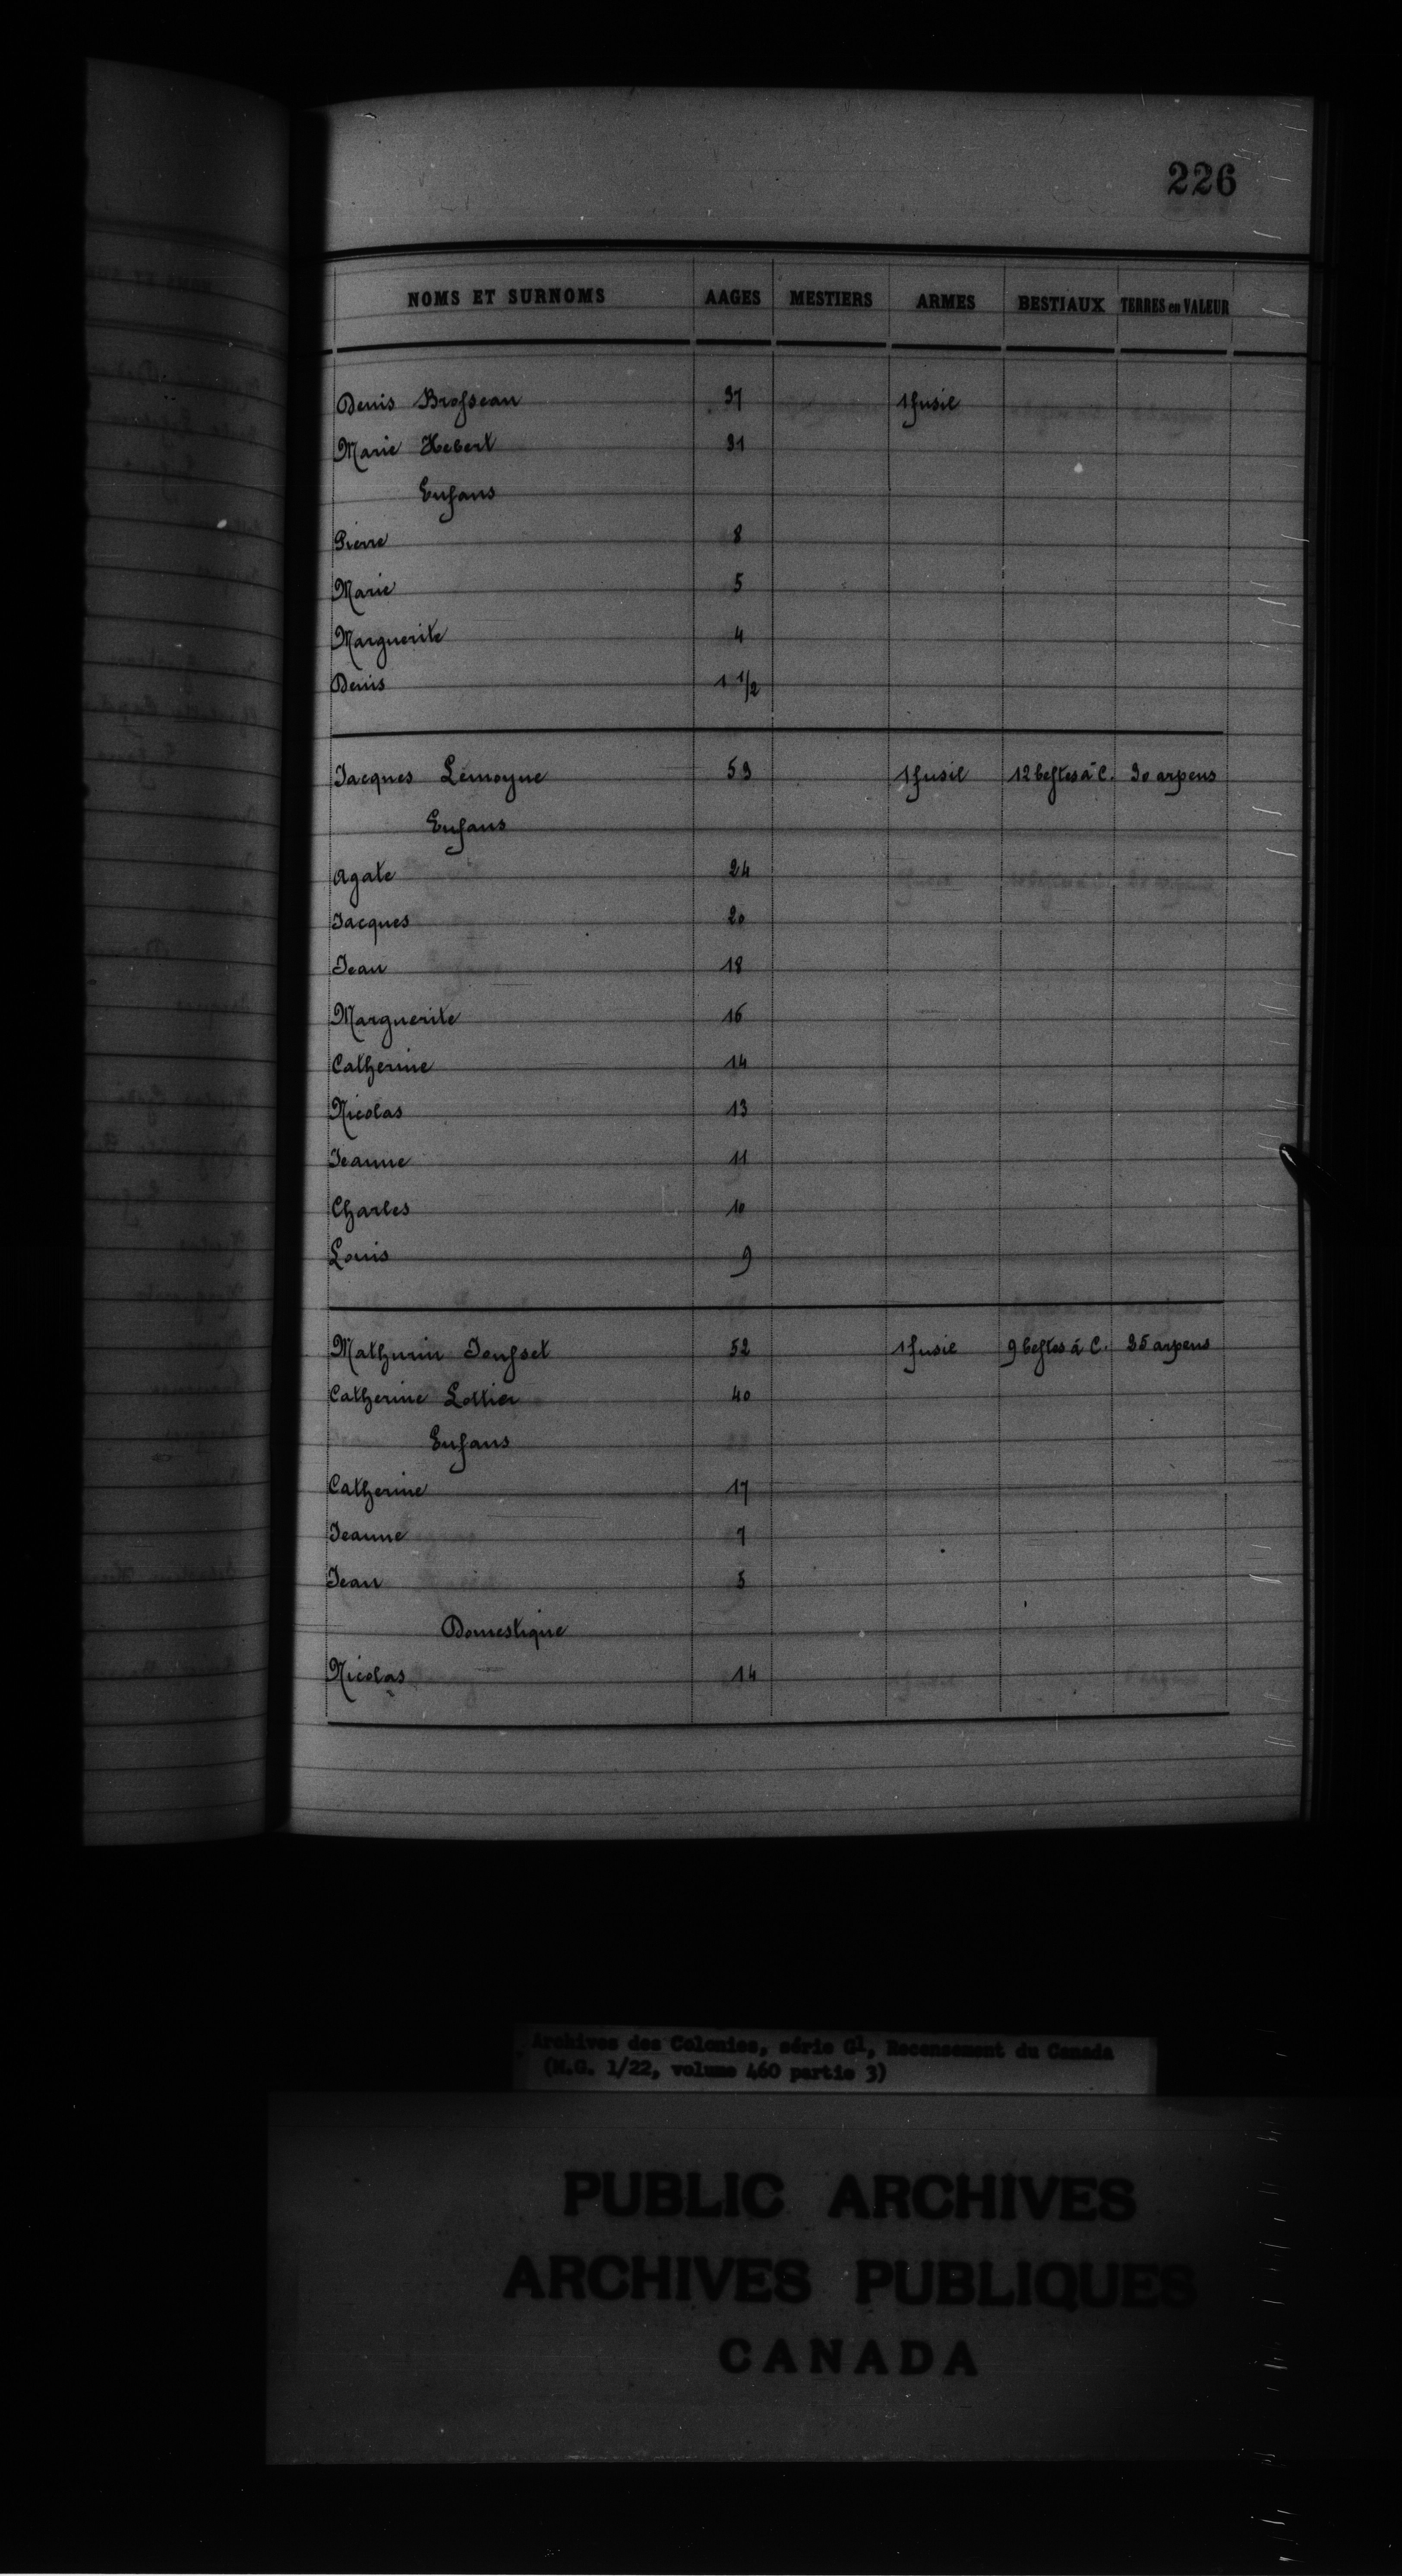 226
NOMS ET SURNOMS AAGES MESTIERS ARMES BESTIAUX TERRES en VALEUR
Denis Brosseau 37 1 fusil
Marie Hebert 31
Enfans
Pierre 8
Marie 5
Marguerite 4
Denis 1 1/2
Jacques Lemoyne 53 1 fusil 12 bestes à C. 30 arpens
Enfans
Agate 24
Jacques 20
Jean 18
Marguerite 16
Catherine 14
Nicolas 13
Jeanne 11
Charles 10
Louis 9
Mathurin Jousset 52 1 fusil 9 bestes à C. 35 arpens
Catherine Lottier 40
Enfans
Catherine 17
Jeanne 7
Jean 5
Domestique
Nicolas 14
Archives des Colonies, série G1, Recensement du Canada
(M.G. 1/22, volume 460 partie 3)
PUBLIC ARCHIVES
ARCHIVES PUBLIQUES
CANADA